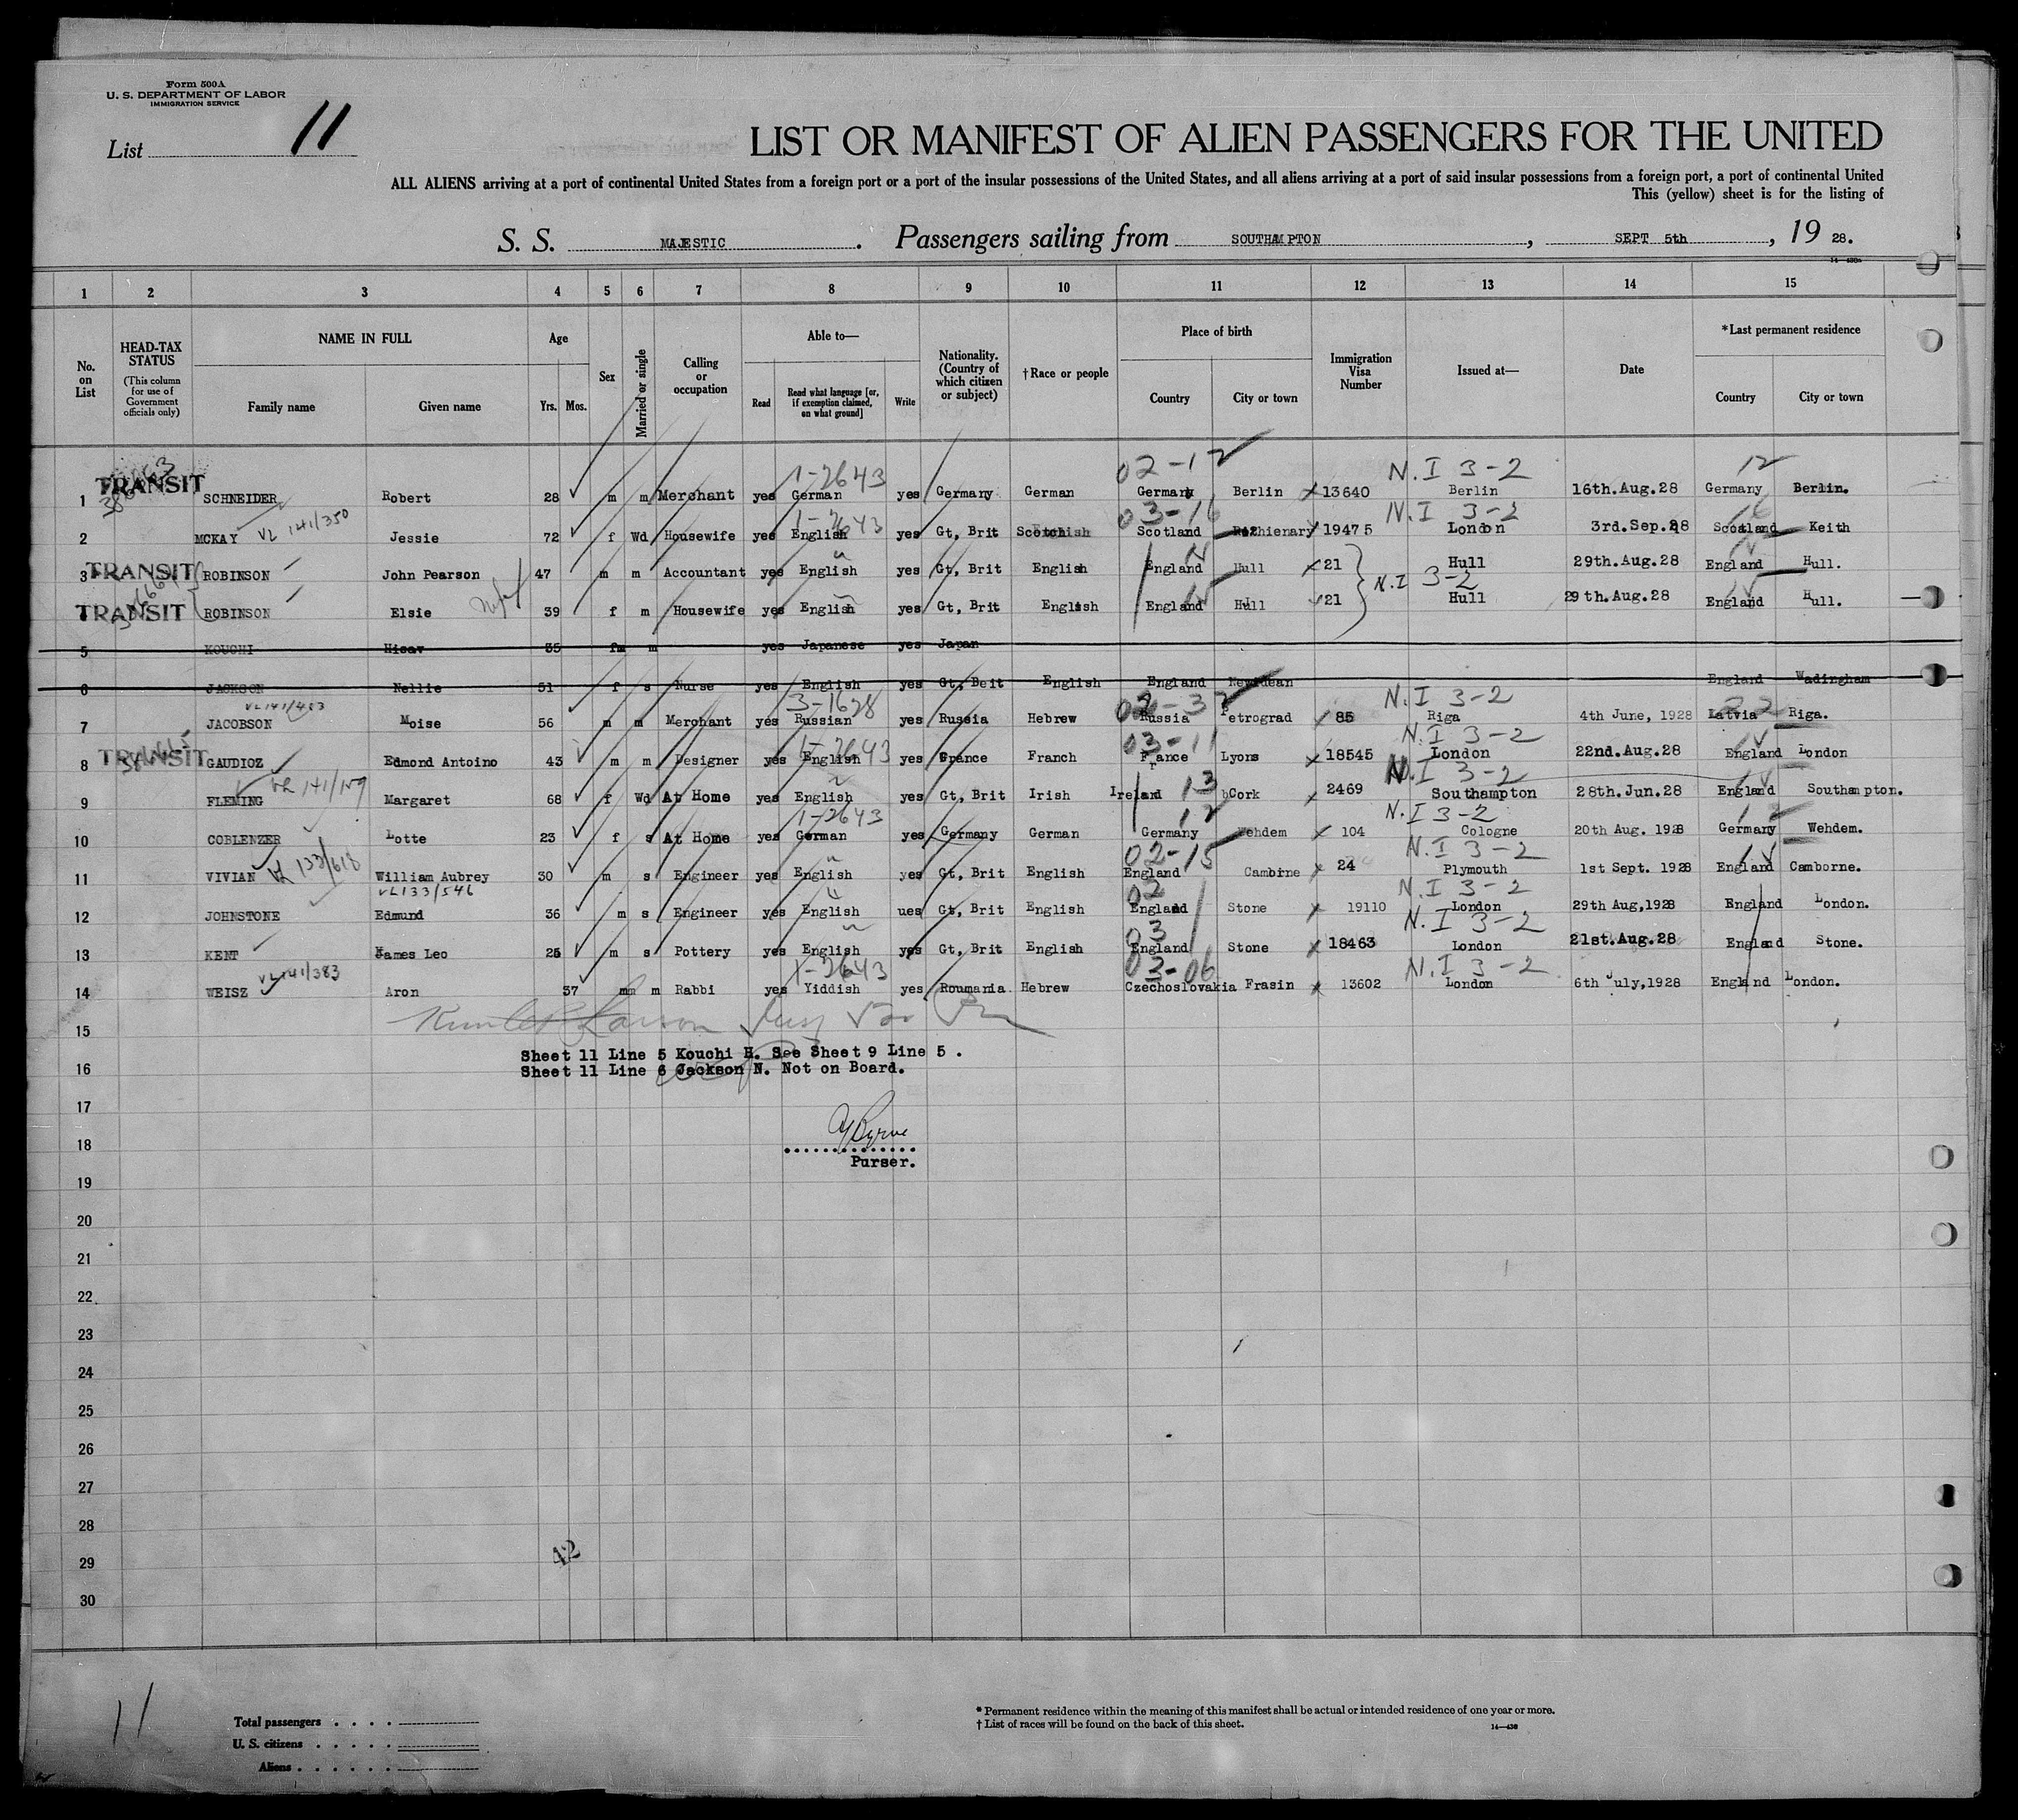 Form 500A
U. S. DEPARTMENT OF LABOR
IMMIGRATION SERVICE
List 11
LIST OR MANIFEST OF ALIEN PASSENGERS FOR THE UNITED
ALL ALIENS arriving at a port of continental United States from a foreign port or a port of the insular possessions of the United States, and all aliens arriving at a port of said insular possessions from a foreign port, a port of continental United
This (yellow) sheet is for the listing of
S. S. MAJESTIC. Passengers sailing from SOUTHAMPTON, SEPT 5th, 19 28.
1 2 3 4 5 6 7 8 9 10 11 12 13 14 15
No. on List
HEAD-TAX STATUS
(This column for use of Government officials only)
NAME IN FULL
Family name Given name
Age
Yrs. Mos.
Sex
Married or single
Calling or occupation
Able to—
Read Read what language [or, if exemption claimed, on what ground] Write
Nationality. (Country of which citizen or subject)
†Race or people
Place of birth
Country City or town
Immigration Visa Number
Issued at—
Date
*Last permanent residence
Country City or town
1-2643 02-12 N.I 3-2 12
1 TRANSIT SCHNEIDER Robert 28 m m Merchant yes German yes Germany German Germany Berlin 13640 Berlin 16th.Aug.28 Germany Berlin.
VL 141/350 1-2643 03-16 N.I 3-2
2 MCKAY Jessie 72 f Wd Housewife yes English yes Gt, Brit Scotchish Scotland 19475 London 3rd.Sep.28 Scotland Keith
3 TRANSIT ROBINSON John Pearson 47 m m Accountant yes English yes Gt, Brit English England Hull 21 Hull 29th.Aug.28 England Hull.
N.I 3-2
4 TRANSIT ROBINSON Elsie 39 f m Housewife yes English yes Gt, Brit English England Hull 21 Hull 29th.Aug.28 England Hull.
5 KOUCHI Hisav 35 fm m yes Japanese yes Japan
6 JACKSON Nellie 51 f s Nurse yes English yes Gt, Beit English England England Wadingham
VL141/423 3-1628 N.I 3-2
7 JACOBSON Moise 56 m m Merchant yes Russian yes Russia Hebrew Russia Petrograd 85 Riga 4th June, 1928 Latvia Riga.
1-2643 03-11 N.I 3-2
8 TRANSIT GAUDIOZ Edmond Antoino 43 m m Designer yes English yes France Franch France Lyons 18545 London 22nd.Aug.28 England London
VL 141/159 13 N.I 3-2
9 FLEMING Margaret 68 f Wd At Home yes English yes Gt, Brit Irish Ireland Cork 2469 Southampton 28th.Jun.28 England Southampton.
1-2643 12 N.I 3-2
10 COBLENZER Lotte 23 f s At Home yes German yes Germany German Germany Wehdem 104 Cologne 20th Aug. 1928 Germany Wehdem.
VL 133/618 02-15 N.I 3-2
11 VIVIAN William Aubrey 30 m s Engineer yes English yes Gt, Brit English England Cambirne 24 Plymouth 1st Sept. 1928 England Camborne.
VL133/546 02 N.I 3-2
12 JOHNSTONE Edmund 36 m s Engineer yes English ues Gt, Brit English England Stone 19110 London 29th Aug,1928 England London.
03 N.I 3-2
13 KENT James Leo 25 m s Pottery yes English yes Gt, Brit English England Stone 18463 London 21st.Aug.28 England Stone.
VL141/383 1-2643 03-06 N.I 3-2
14 WEISZ Aron 37 mm m Rabbi yes Yiddish yes Roumania Hebrew Czechoslovakia Frasin 13602 London 6th July,1928 England London.
15
Sheet 11 Line 5 Kouchi H. See Sheet 9 Line 5 .
16 Sheet 11 Line 6 Jackson N. Not on Board.
17
18 Byrne
Purser.
19
20
21
22
23
24
25
26
27
28
29 42
30
11
Total passengers
U. S. citizens
Aliens
* Permanent residence within the meaning of this manifest shall be actual or intended residence of one year or more.
† List of races will be found on the back of this sheet.
14—430